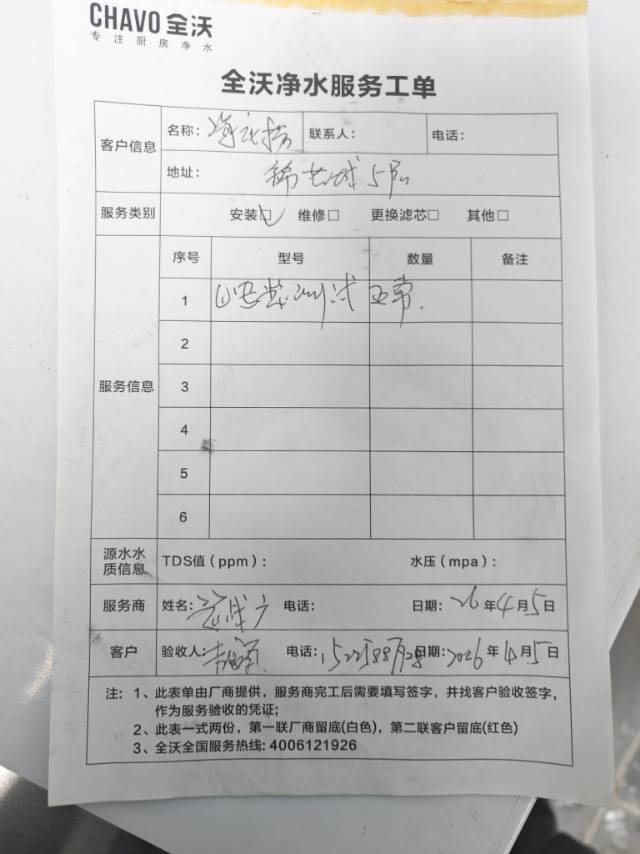 CHAVO 全沃
专注厨房净水
全沃净水服务工单
客户信息
名称: 海底捞 联系人: 电话:
地址: 5店
服务类别 安装☑ 维修□ 更换滤芯□ 其他□
服务信息
序号 型号 数量 备注
1 安装测试正常.
2
3
4
5
6
源水水质信息 TDS值(ppm): 水压(mpa):
服务商 姓名: 电话: 日期: 26年4月5日
客户 验收人: 电话: 日期: 2026年4月5日
注: 1、此表单由厂商提供, 服务商完工后需要填写签字, 并找客户验收签字,
作为服务验收的凭证;
2、此表一式两份, 第一联厂商留底(白色), 第二联客户留底(红色)
3、全沃全国服务热线: 4006121926